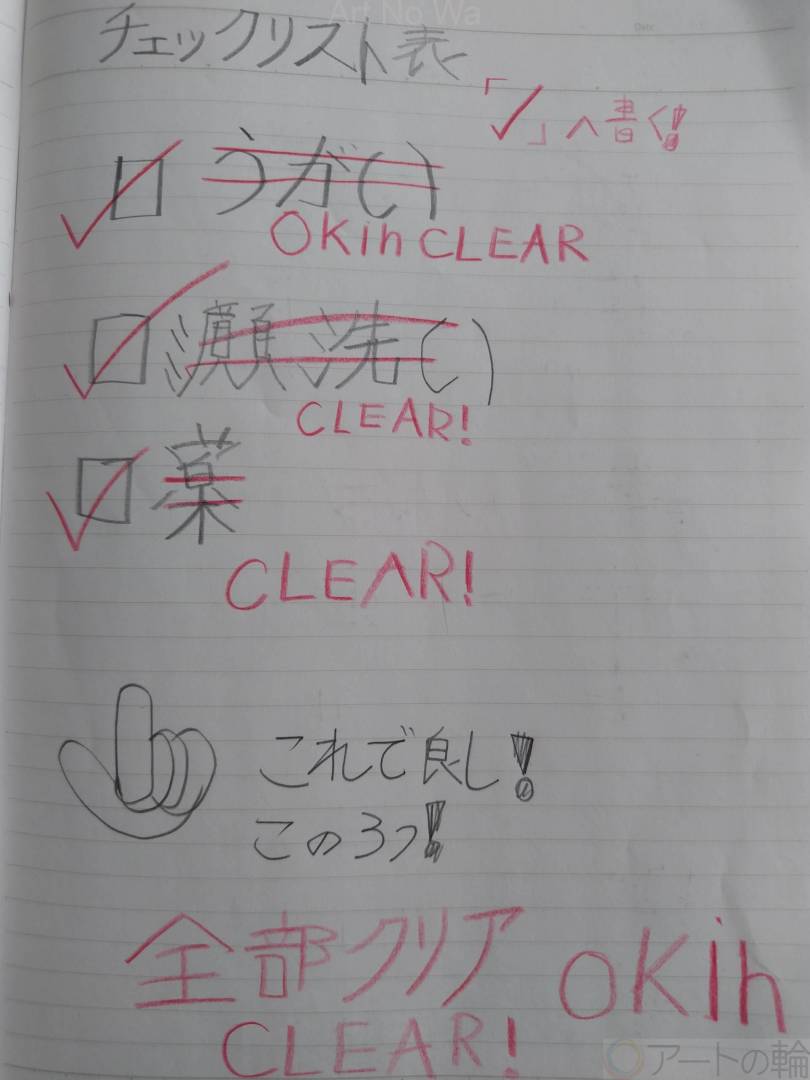 Art No Wa
チェックリスト表
「✓」へ書く!
うがい
OKih CLEAR
顔洗い
CLEAR!
薬
CLEAR!
これで良し!
この3つ!
全部クリア okih
CLEAR!
アートの輪